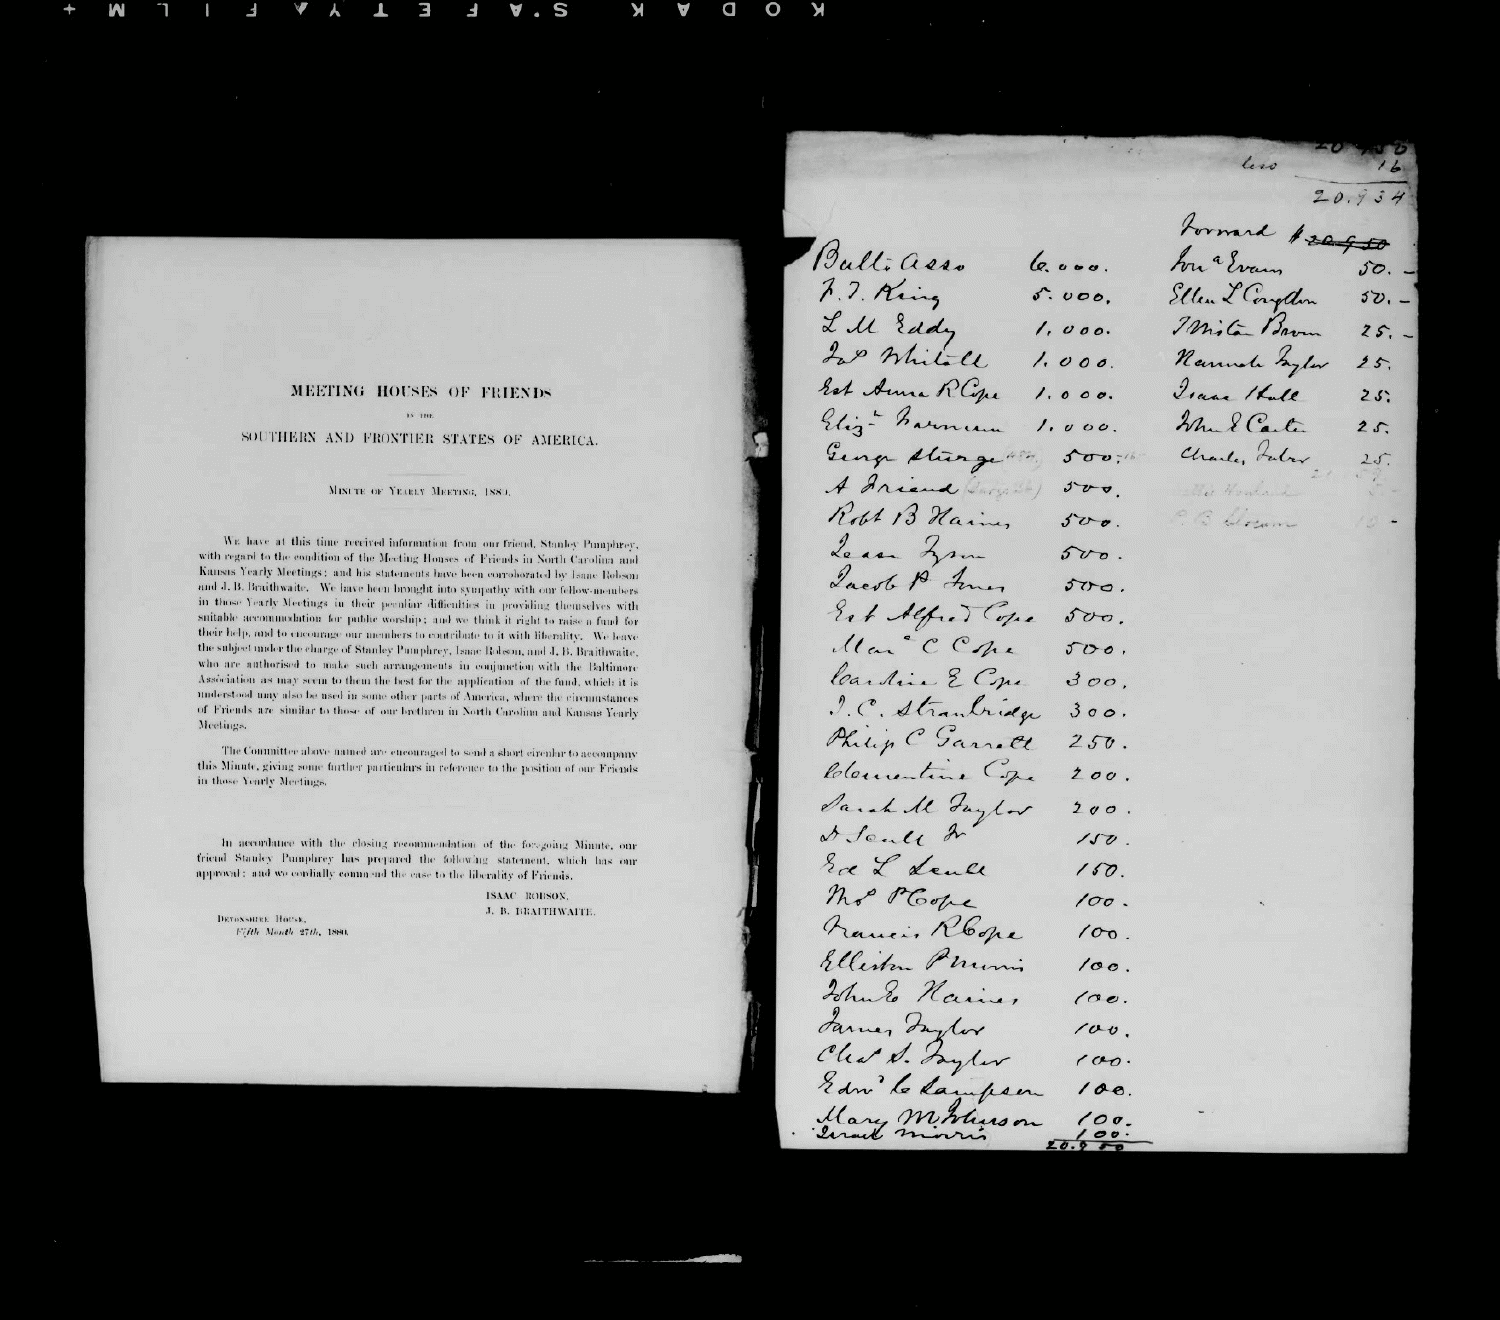 KODAK SAFETY FILM +
MEETING HOUSES OF FRIENDS
IN THE
SOUTHERN AND FRONTIER STATES OF AMERICA.
MINUTE OF YEARLY MEETING, 1880.
We have at this time received information from our friend, Stanley Pumphrey,
with regard to the condition of the Meeting Houses of Friends in North Carolina and
Kansas Yearly Meetings; and his statements have been corroborated by Isaac Robson
and J. B. Braithwaite. We have been brought into sympathy with our fellow-members
in those Yearly Meetings in their peculiar difficulties in providing themselves with
suitable accommodation for public worship; and we think it right to raise a fund for
their help, and to encourage our members to contribute to it with liberality. We leave
the subject under the charge of Stanley Pumphrey, Isaac Robson, and J. B. Braithwaite,
who are authorised to make such arrangements in conjunction with the Baltimore
Association as may seem to them the best for the application of the fund, which it is
understood may also be used in some other parts of America, where the circumstances
of Friends are similar to those of our brethren in North Carolina and Kansas Yearly
Meetings.
The Committee above named are encouraged to send a short circular to accompany
this Minute, giving some further particulars in reference to the position of our Friends
in those Yearly Meetings.
In accordance with the closing recommendation of the foregoing Minute, our
friend Stanley Pumphrey has prepared the following statement, which has our
approval; and we cordially commend the case to the liberality of Friends.
ISAAC ROBSON,
J. B. BRAITHWAITE.
DEVONSHIRE HOUSE,
Fifth Month 27th, 1880.
20.950
less 16
20.934
Forward $ 20.950
Balti Asso 6.000.
F. T. King 5.000.
L M Eddy 1.000.
Jos Whitall 1.000.
Est Anna R Cope 1.000.
Eliza Farnum 1.000.
George Sturge 500.
A Friend 500.
Robt B Haines 500.
Tyson 500.
Jacob P Jones 500.
Est Alfred Cope 500.
Mara C Cope 500.
Caroline E Cope 300.
J. C. Strawbridge 300.
Philip C Garrett 250.
Clementine Cope 200.
Sarah M Taylor 200.
D Scull Jr 150.
Ed L Scull 150.
Thos P Cope 100.
Francis R Cope 100.
Elliston P Morris 100.
John E Haines 100.
James Taylor 100.
Chas S. Taylor 100.
Edwd C Sampson 100.
Mary M Johnson 100.
Israel Morris 100.
20.950
Jona Evans 50. -
Ellen L Congdon 50. -
T Wistar Brown 25. -
Hannah Taylor 25.
Isaac Hall 25.
John E Carter 25.
Charles Taber 25.
P. B. Slocum 10 -